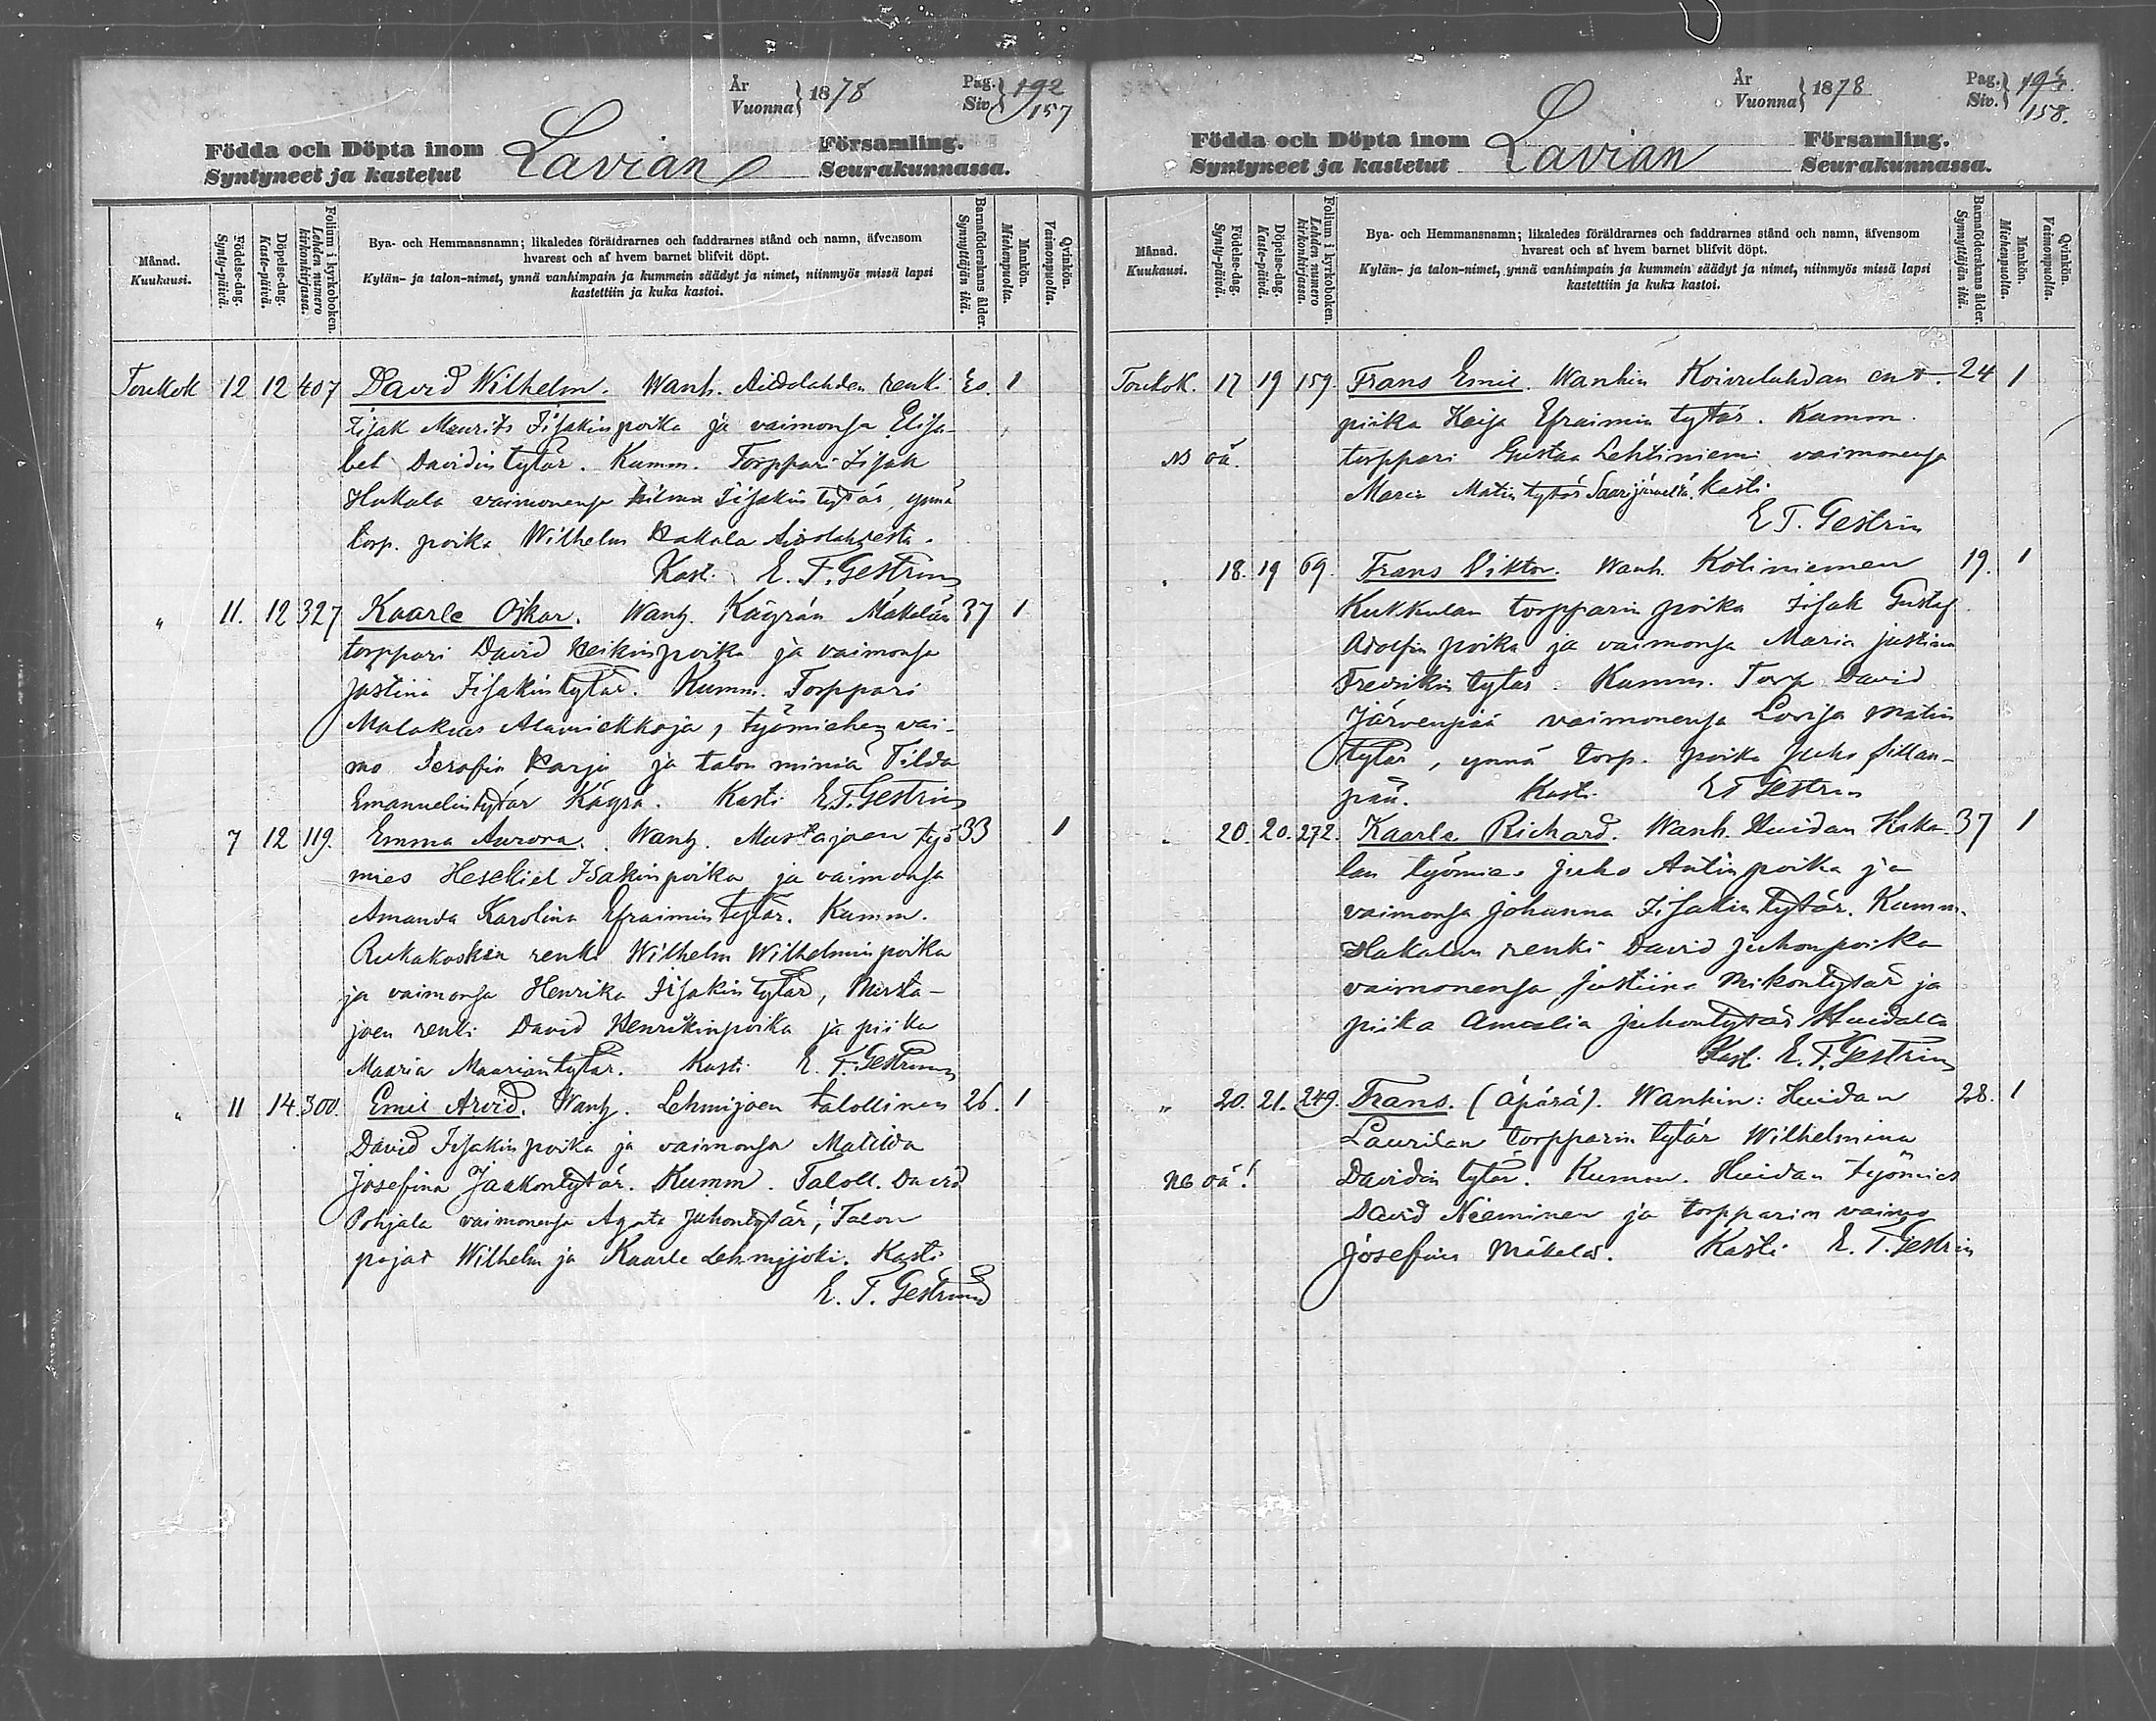 År
Vuonna} 1878
Pag.
Siv.} 192
157
Födda och Döpta inom
Syntyneet ja kastetut
Lavian
Församling.
Seurakunnassa.
Månad.
Kuukausi.
Födelse-dag.
Synty-päivä.
Döpelse-dag.
Kaste-päivä.
Folium i kyrkoboken.
Lehden numero kirkonkirjassa.
Bya- och Hemmansnamn; likaledes föräldrarnes och faddrarnes stånd och namn, äfvensom
hvarest och af hvem barnet blifvit döpt.
Kylän- ja talon-nimet, ynnä vanhimpain ja kummein säädyt ja nimet, niinmyös missä lapsi
kastettiin ja kuka kastoi.
Barnaföderskans ålder.
Synnyttäjän ikä.
Mankön.
Miehenpuolta.
Qvinkön.
Vaimonpuolta.
Toukok 12 12 407 David Wilhelm. Wanh. renki 1
Iisak Maurits Iisakinpoika ja vaimonsa Elisa-
bet Davidintytär. Kumm. Torppari Iisak
Hakala vaimonensa Hilma Iisakintytär, ynnä
torp. poika Wilhelm Hakala
Kast. E. F. Gestrin
" 11. 12 327 Kaarle Oskar. Wanh. Käyrän Mäkelän 37 1
torppari David Heikinpoika ja vaimonsa
Justina Iisakintytär. Kumm. Torppari
Malakias työmiehen vai-
mo Serafia Harju ja talon miniä Tilda
Emanuelintytär Käyrä. Kasti E. F. Gestrin
7 12 119. Emma Aurora. Wanh. Mustajoen työ 33 1
mies Hesekiel Isakinpoika ja vaimonsa
Amanda Karolina Efraimintytär. Kumm.
renki Wilhelm Wilhelminpoika
ja vaimonsa Henrika Iisakintytär, Musta-
joen renki David Henrikinpoika ja piika
Maaria Maariantytär. Kasti E. F. Gestrin
" 11 14. 300. Emil Arvid. Wanh. Lehmijoen talollinen 26. 1
David Iisakinpoika ja vaimonsa Matilda
Josefina Jaakontytär. Kumm. Taloll. David
Pohjala vaimonensa Agata Juhontytär; Talon
pojat Wilhelm ja Kaarle Lehmijoki. Kasti
E. F. Gestrin
År
Vuonna} 1878
Pag.
Siv.}
158.
Födda och Döpta inom
Syntyneet ja kastetut
Lavian
Församling.
Seurakunnassa.
Månad.
Kuukausi.
Födelse-dag.
Synty-päivä.
Döpelse-dag.
Kaste-päivä.
Folium i kyrkoboken.
Lehden numero kirkonkirjassa.
Bya- och Hemmansnamn; likaledes föräldrarnes och faddrarnes stånd och namn, äfvensom
hvarest och af hvem barnet blifvit döpt.
Kylän- ja talon-nimet, ynnä vanhimpain ja kummein säädyt ja nimet, niinmyös missä lapsi
kastettiin ja kuka kastoi.
Barnaföderskans ålder.
Synnyttäjän ikä.
Mankön.
Miehenpuolta.
Qvinkön.
Vaimonpuolta.
Toukok. 17 19 159. Frans Emil. Wanhin Koivulahdan ent. 24 1
piika Kaisa Efraimin tytär. Kumm
NB oä. torppari Gustaa Lehtiniemi vaimonensa
Maria Matintytär Saarijärveltä. Kasti
E F. Gestrin
" 18. 19 69. Frans Viktor. Wanh. Kotiniemen 19. 1
Kukkulan torpparin poika Iisak Gustaf
Adolfin poika ja vaimonsa Maria Justiina
Fredrikin tytär. Kumm. Torp David
Järvenpää vaimonensa Lovisa Matin
tytär, ynnä torp. poika Juho Sillan-
pää. Kasti E F Gestrin
" 20. 20. 272. Kaarle Richard. Wanh. Huidan Haka- 37 1
lan työmies Juho Antinpoika ja
vaimonsa Johanna Iisakin tytär. Kumm.
Hakalan renki David Juhonpoika
vaimonensa Justiina Mikontytär ja
piika Amalia Juhontytär Huidalta
Kast. E. F. Gestrin
" 20. 21. 249. Frans. (Äpärä). Wanhin: Huidan 28. 1
Laurilan torpparin tytär Wilhelmina
NB oä! Davidin tytär. Kumm. Huidan työmies
David Nieminen ja torpparin vaimo
Josefina Mäkelä. Kasti E. F. Gestrin